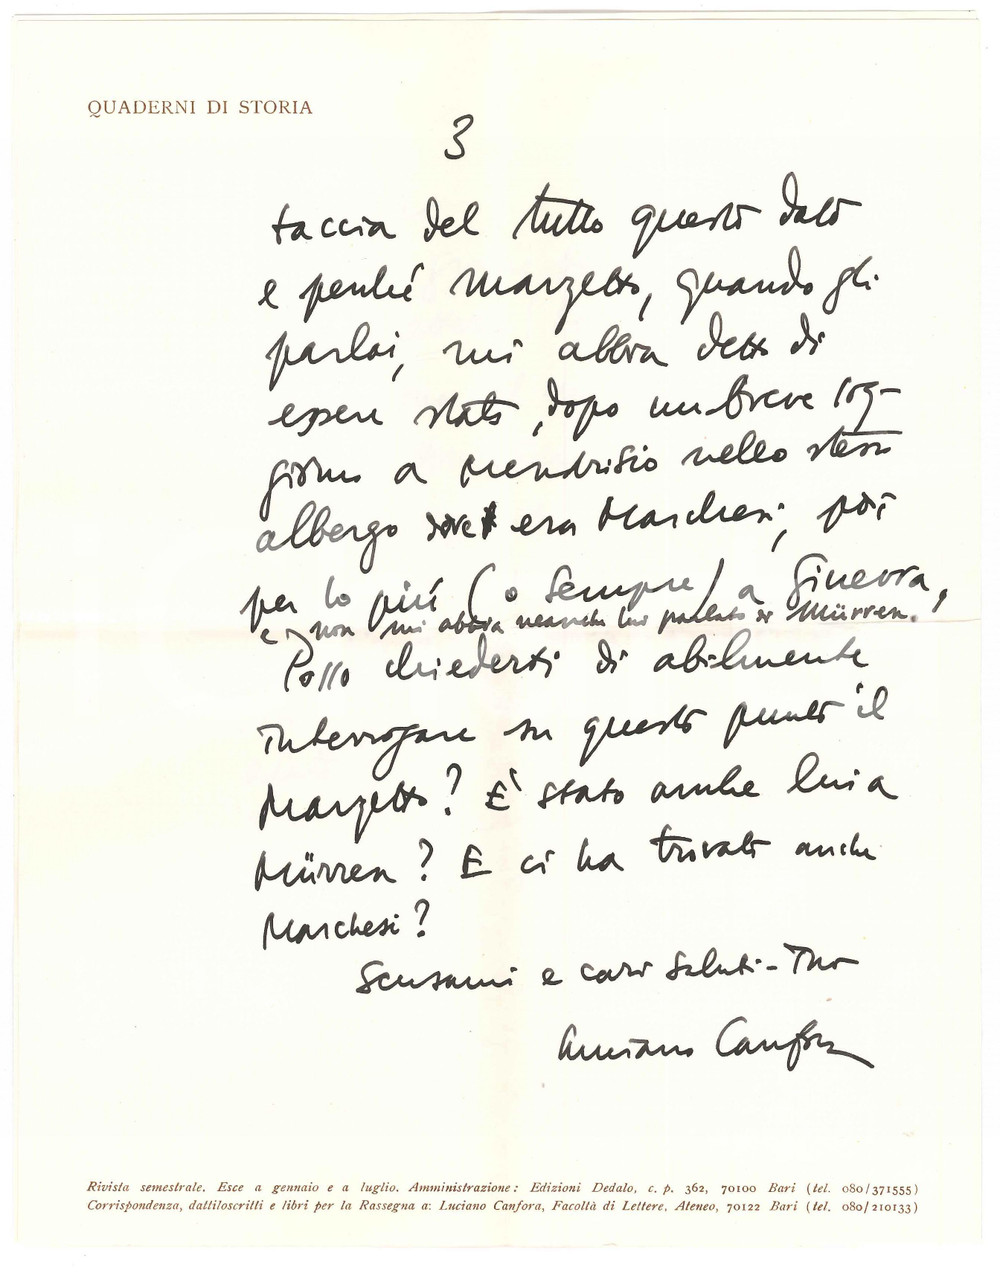 QUADERNI DI STORIA
3
taccia del tutto questo dato
e perché Marzetto, quando gli
parlai, mi abbia detto di
essere stato, dopo un breve sog-
giorno a Mendrisio nello stesso
albergo dove era Marchesi, poi
per lo più (o sempre) a Ginevra,
e non mi abbia neanche lui parlato di Mürren.
Posso chiederti di abilmente
interrogare su questo punto il
Marzetto? È stato anche lui a
Mürren? E ci ha trovato anche
Marchesi?
Scusami e cari saluti - Tuo
Luciano Canfora
Rivista semestrale. Esce a gennaio e a luglio. Amministrazione: Edizioni Dedalo, c. p. 362, 70100 Bari (tel. 080/371555)
Corrispondenza, dattiloscritti e libri per la Rassegna a: Luciano Canfora, Facoltà di Lettere, Ateneo, 70122 Bari (tel. 080/210133)